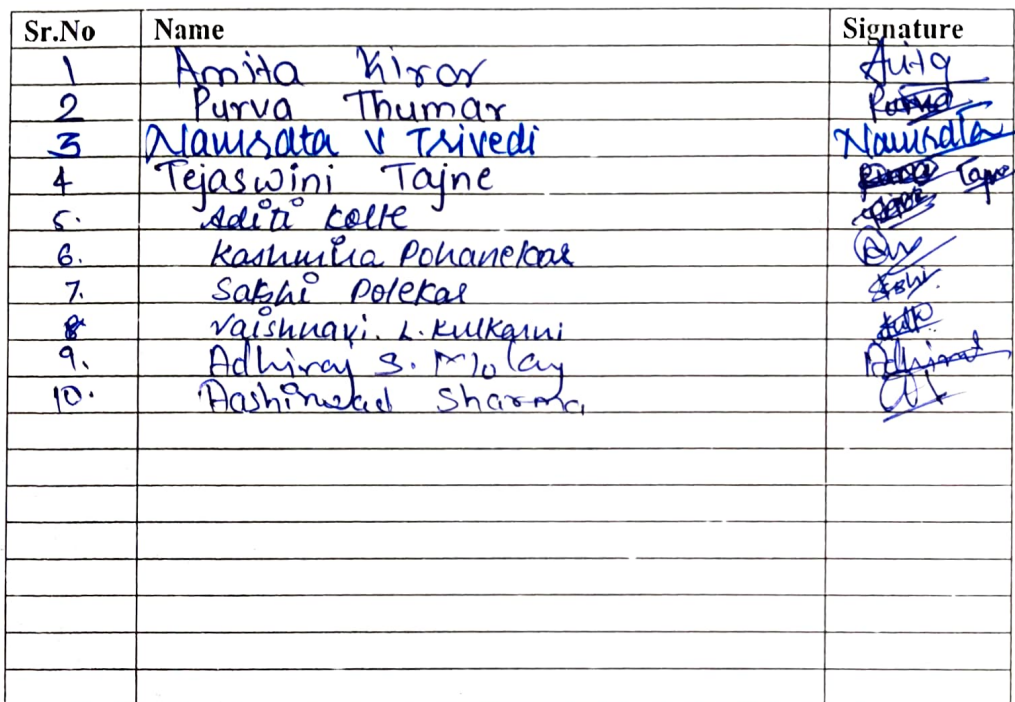 Sr.No Name Signature
1 Amita Kiror Amita
2 Purva Thumar Purva
3 Namrata V Trivedi Namrata
4 Tejaswini Tajne Tajne
5. Aditi Kolte
6. Kashmira Pohanekar
7. Sakshi Polekar
8 Vaishnavi. L. Kulkarni
9. Adhiraj S. Molay Adhiraj
10. Aashirwad Sharma